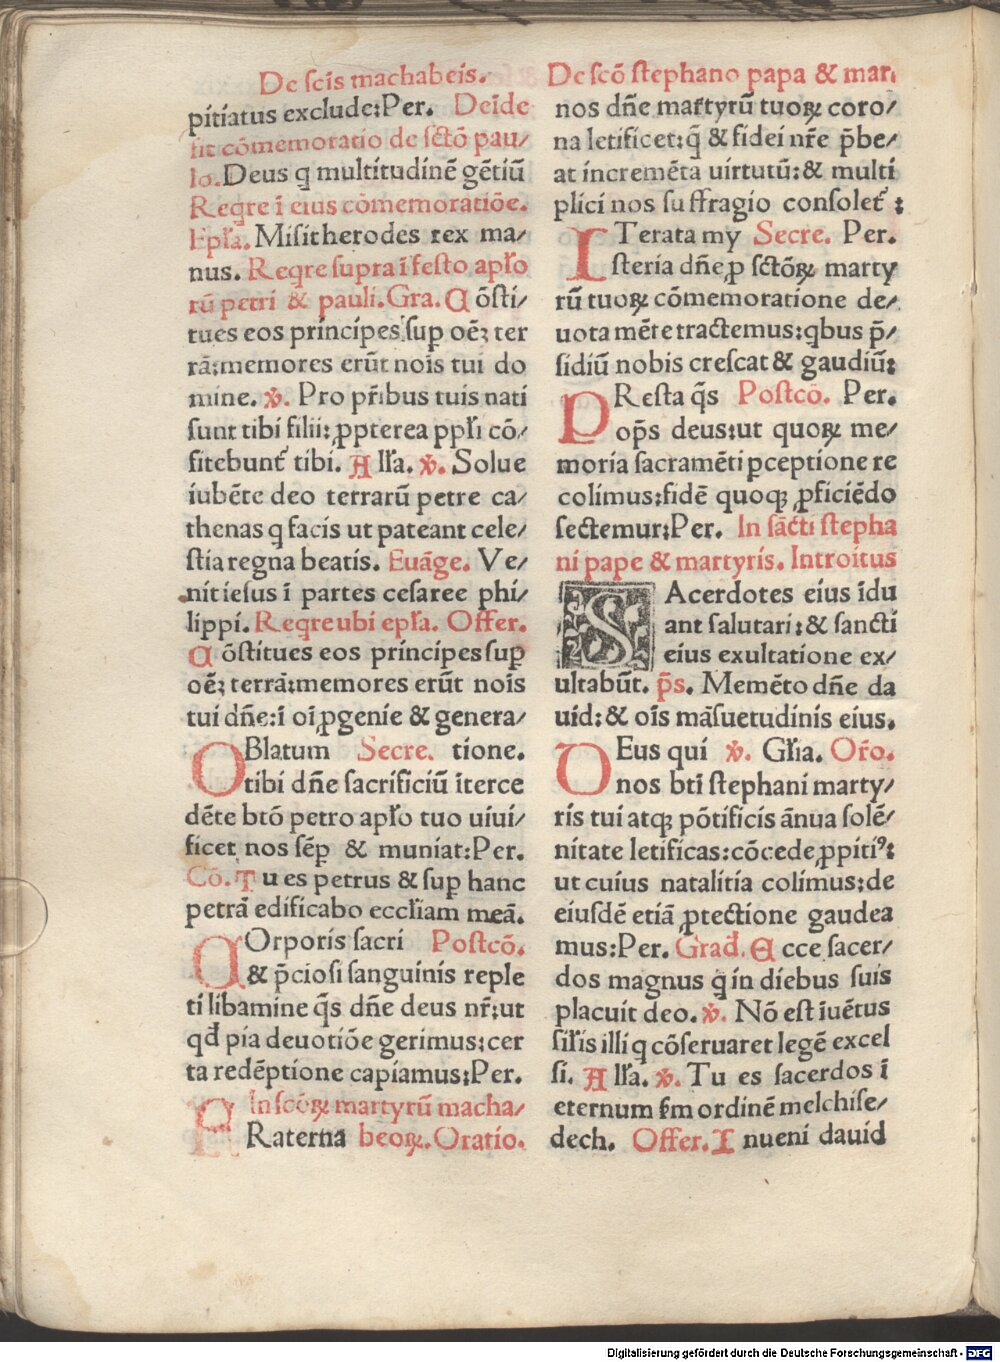 De sc̄is machabeis.
pitiatus exclude:Per. Deīde
fit cōmemoratio de sc̄tō pau/
lo. Deus q̄ multitudinē gētiū
Reqre ī eius cōmemoratiōe.
Ep̄ła. Misit herodes rex ma/
nus. Reqre supra ī festo ap̄ło
rū petri & pauli. Gra. Cōsti/
tues eos principes sup oēꝫ ter
rā:memores erūt nois tui do
mine. ℣. Pro pr̄ibus tuis nati
sunt tibi filii: ꝓpterea ppłi cō/
fitebunt᷑ tibi. Ałła. ℣. Solue
iubēte deo terrarū petre ca/
thenas q facis ut pateant cele/
stia regna beatis. Euāge. Ve/
nit iesus ī partes cesaree phi/
lippi. Reqre ubi epła. Offer.
Cōstitues eos principes sup
oēꝫ terrā:memores erūt nois
tui dn̄e:ī oi ꝓgenie & genera/
OBlatum Secre. tione.
tibi dn̄e sacrificiū īterce
dēte btō petro apło tuo uiui/
ficet nos sēp & muniat:Per.
Cō. Tu es petrus & sup hanc
petrā edificabo eccłiam meā.
COrporis sacri Postcō.
& p̄ciosi sanguinis reple
ti libamine q̄s dn̄e deus nr̄:ut
qđ pia deuotiōe gerimus:cer
ta redēptione capiamus:Per.
In scōꝝ martyrū macha/
FRaterna beoꝝ. Oratio.
De scō stephano papa & mar.
nos dn̄e martyrū tuoꝝ coro/
na letificet:q̄ & fidei nr̄e p̄be/
at incremēta uirtutū:& multi
plici nos suffragio consolet᷑:
ITerata my Secre. Per.
steria dn̄e ꝓ sc̄tōꝝ marty
rū tuoꝝ cōmemoratione de/
uota mēte tractemus:qbus p̄/
sidiū nobis crescat & gaudiū:
PResta q̄s Postcō. Per.
op̄s deus:ut quoꝝ me/
moria sacramēti pceptione re
colimus:fidē quoqꝫ ꝓficiēdo
sectemur:Per. In sācti stepha
ni pape & martyris. Introitus
SAcerdotes eius īdu
ant salutari:& sancti
eius exultatione ex/
ultabūt. p̄s. Memēto dn̄e da
uid:& ois māsuetudinis eius.
DEus qui ℣. Głia. Oro.
nos bti stephani marty/
ris tui atqꝫ pōtificis ānua solē/
nitate letificas:cōcede ꝓpitiꝰ:
ut cuius natalitia colimus:de
eiusdē etiā ꝓtectione gaudea
mus:Per. Grad. Ecce sacer/
dos magnus q in diebus suis
placuit deo. ℣. Nō est īuētus
siłis illi q cōseruaret legē excel
si. Ałła. ℣. Tu es sacerdos ī
eternum ẜm ordinē melchise/
dech. Offer. Inueni dauid
Digitalisierung gefördert durch die Deutsche Forschungsgemeinschaft - DFG